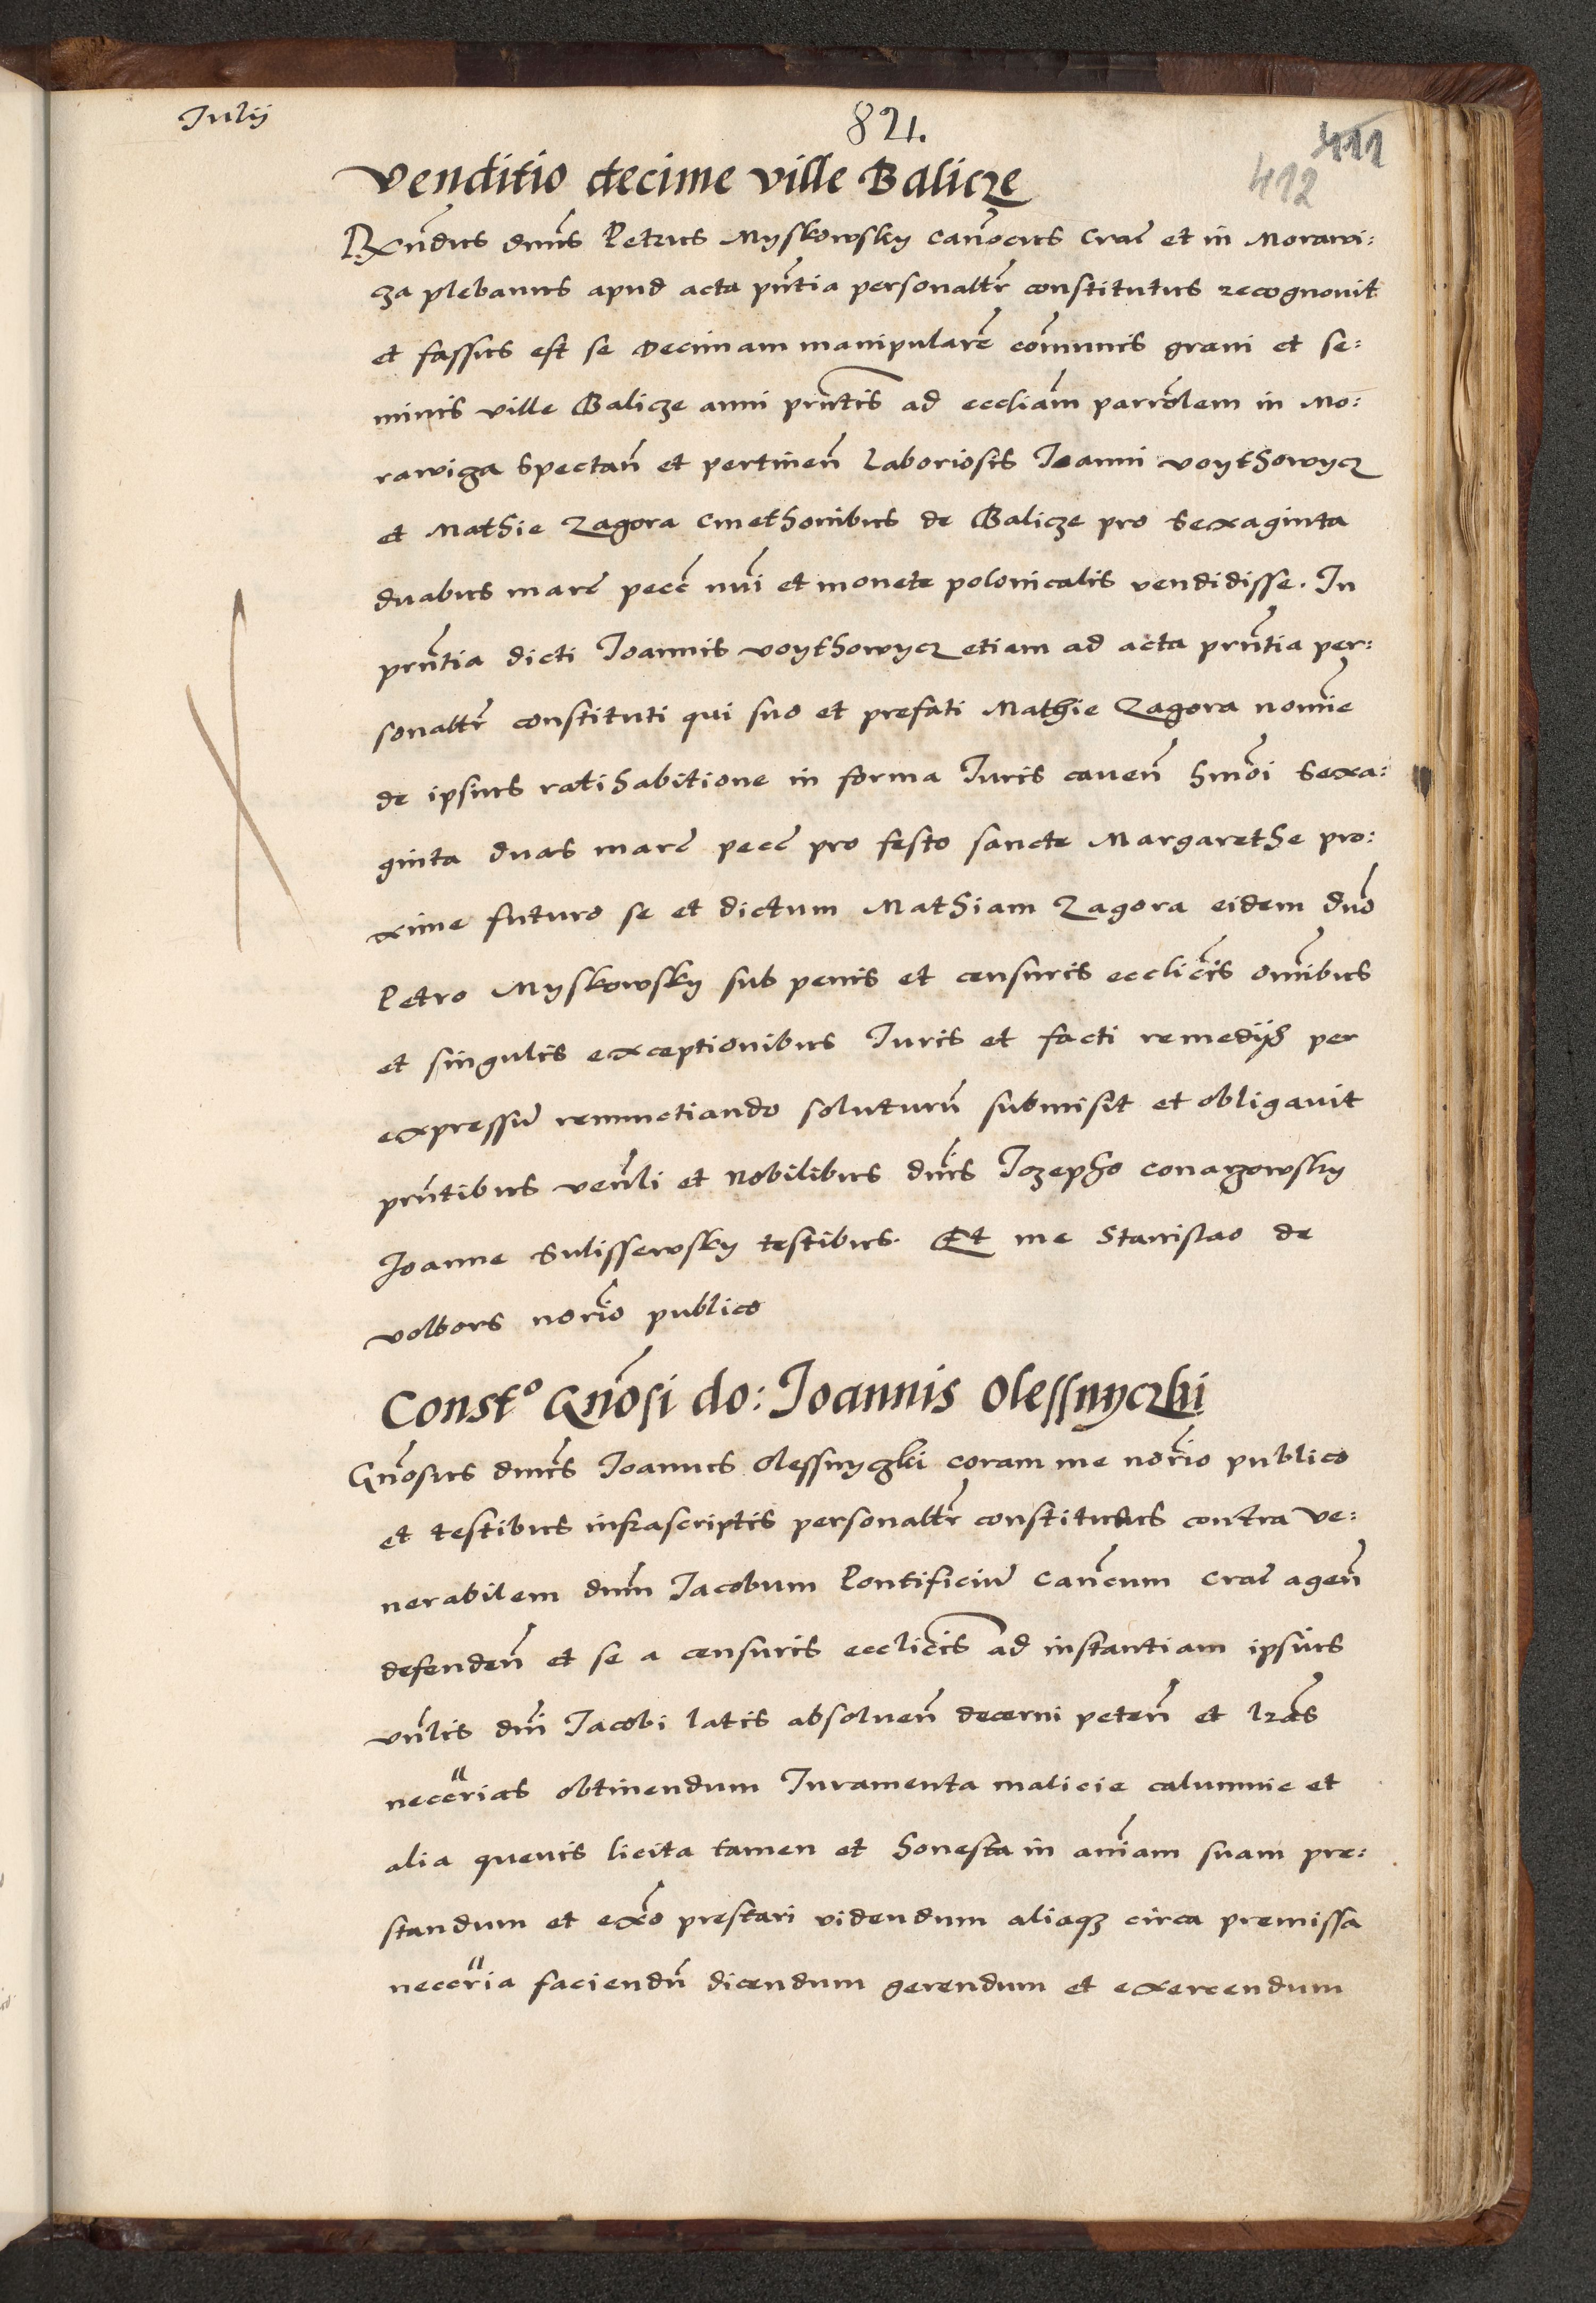 Julij
821.
411
412
Venditio decime ville Balicze
Rxn̄dus dn̄us Petrus Myskowsky can̄ocus Crac̄ et in Morawi:
cza plebanus apud acta pn̄tia personalr̄ constitutus recognouit
et fassus est se Decimam manipularē com̄unis grani et se:
minis ville Balicze anni prn̄tis ad eccliam̄ parrōlem in Mo:
rawicza spectan̄ et pertinen̄ Laboriosis Joanni voythowycz
et Mathie Zagora Cmethonibus de Balicze pro sexaginta
duabus marc̄ pecc̄ nūi et monete polonicalis vendidisse. In
prn̄tia dicti Joannis voythowycz etiam ad acta prn̄tia per:
sonalr̄ constituti qui suo et prefati Mathie Zagora nomīe
de ipsius ratihabitione in forma Juris cauen̄ hmōi sexa:
ginta duas marc̄ pecc̄ pro festo sancte Margarethe pro:
xime futuro se et dictum Mathiam Zagora eidem dn̄o
Petro Myskowsky sub penis et censuris ecclic̄is om̄ibus
et singulis exceptionibus Juris et facti remedijs per
expressū renunctiando soluturū submisit et obligauit
prn̄tibus ven̄li et Nobilibus dn̄is Jozepho conarzowsky
Joanne Sulissewsky testibus. Et me Stanislao de
volbors norīo publico
Const° Gn̄osi do: Joannis Olessnyczki
Gn̄osus dn̄us Joannes Olessnyczki coram me norīo publico
et testibus infrascriptis personalr̄ constitutus contra ve:
nerabilem dn̄m Jacobum Pontificiū Can̄cum Crac̄ agen̄
defenden̄ et se a censuris ecclic̄is ad instantiam ipsius
vn̄lis dn̄i Jacobi latis absoluen̄ decerni peten̄ et lrās
neccrīas obtinendum Juramenta malicie calumnie et
alia quevis licita tamen et honesta in anīam suam pre:
standum et exō prestari videndum aliaqʒ circa premissa
neccrīa faciendū dicendum gerendum et exercendum